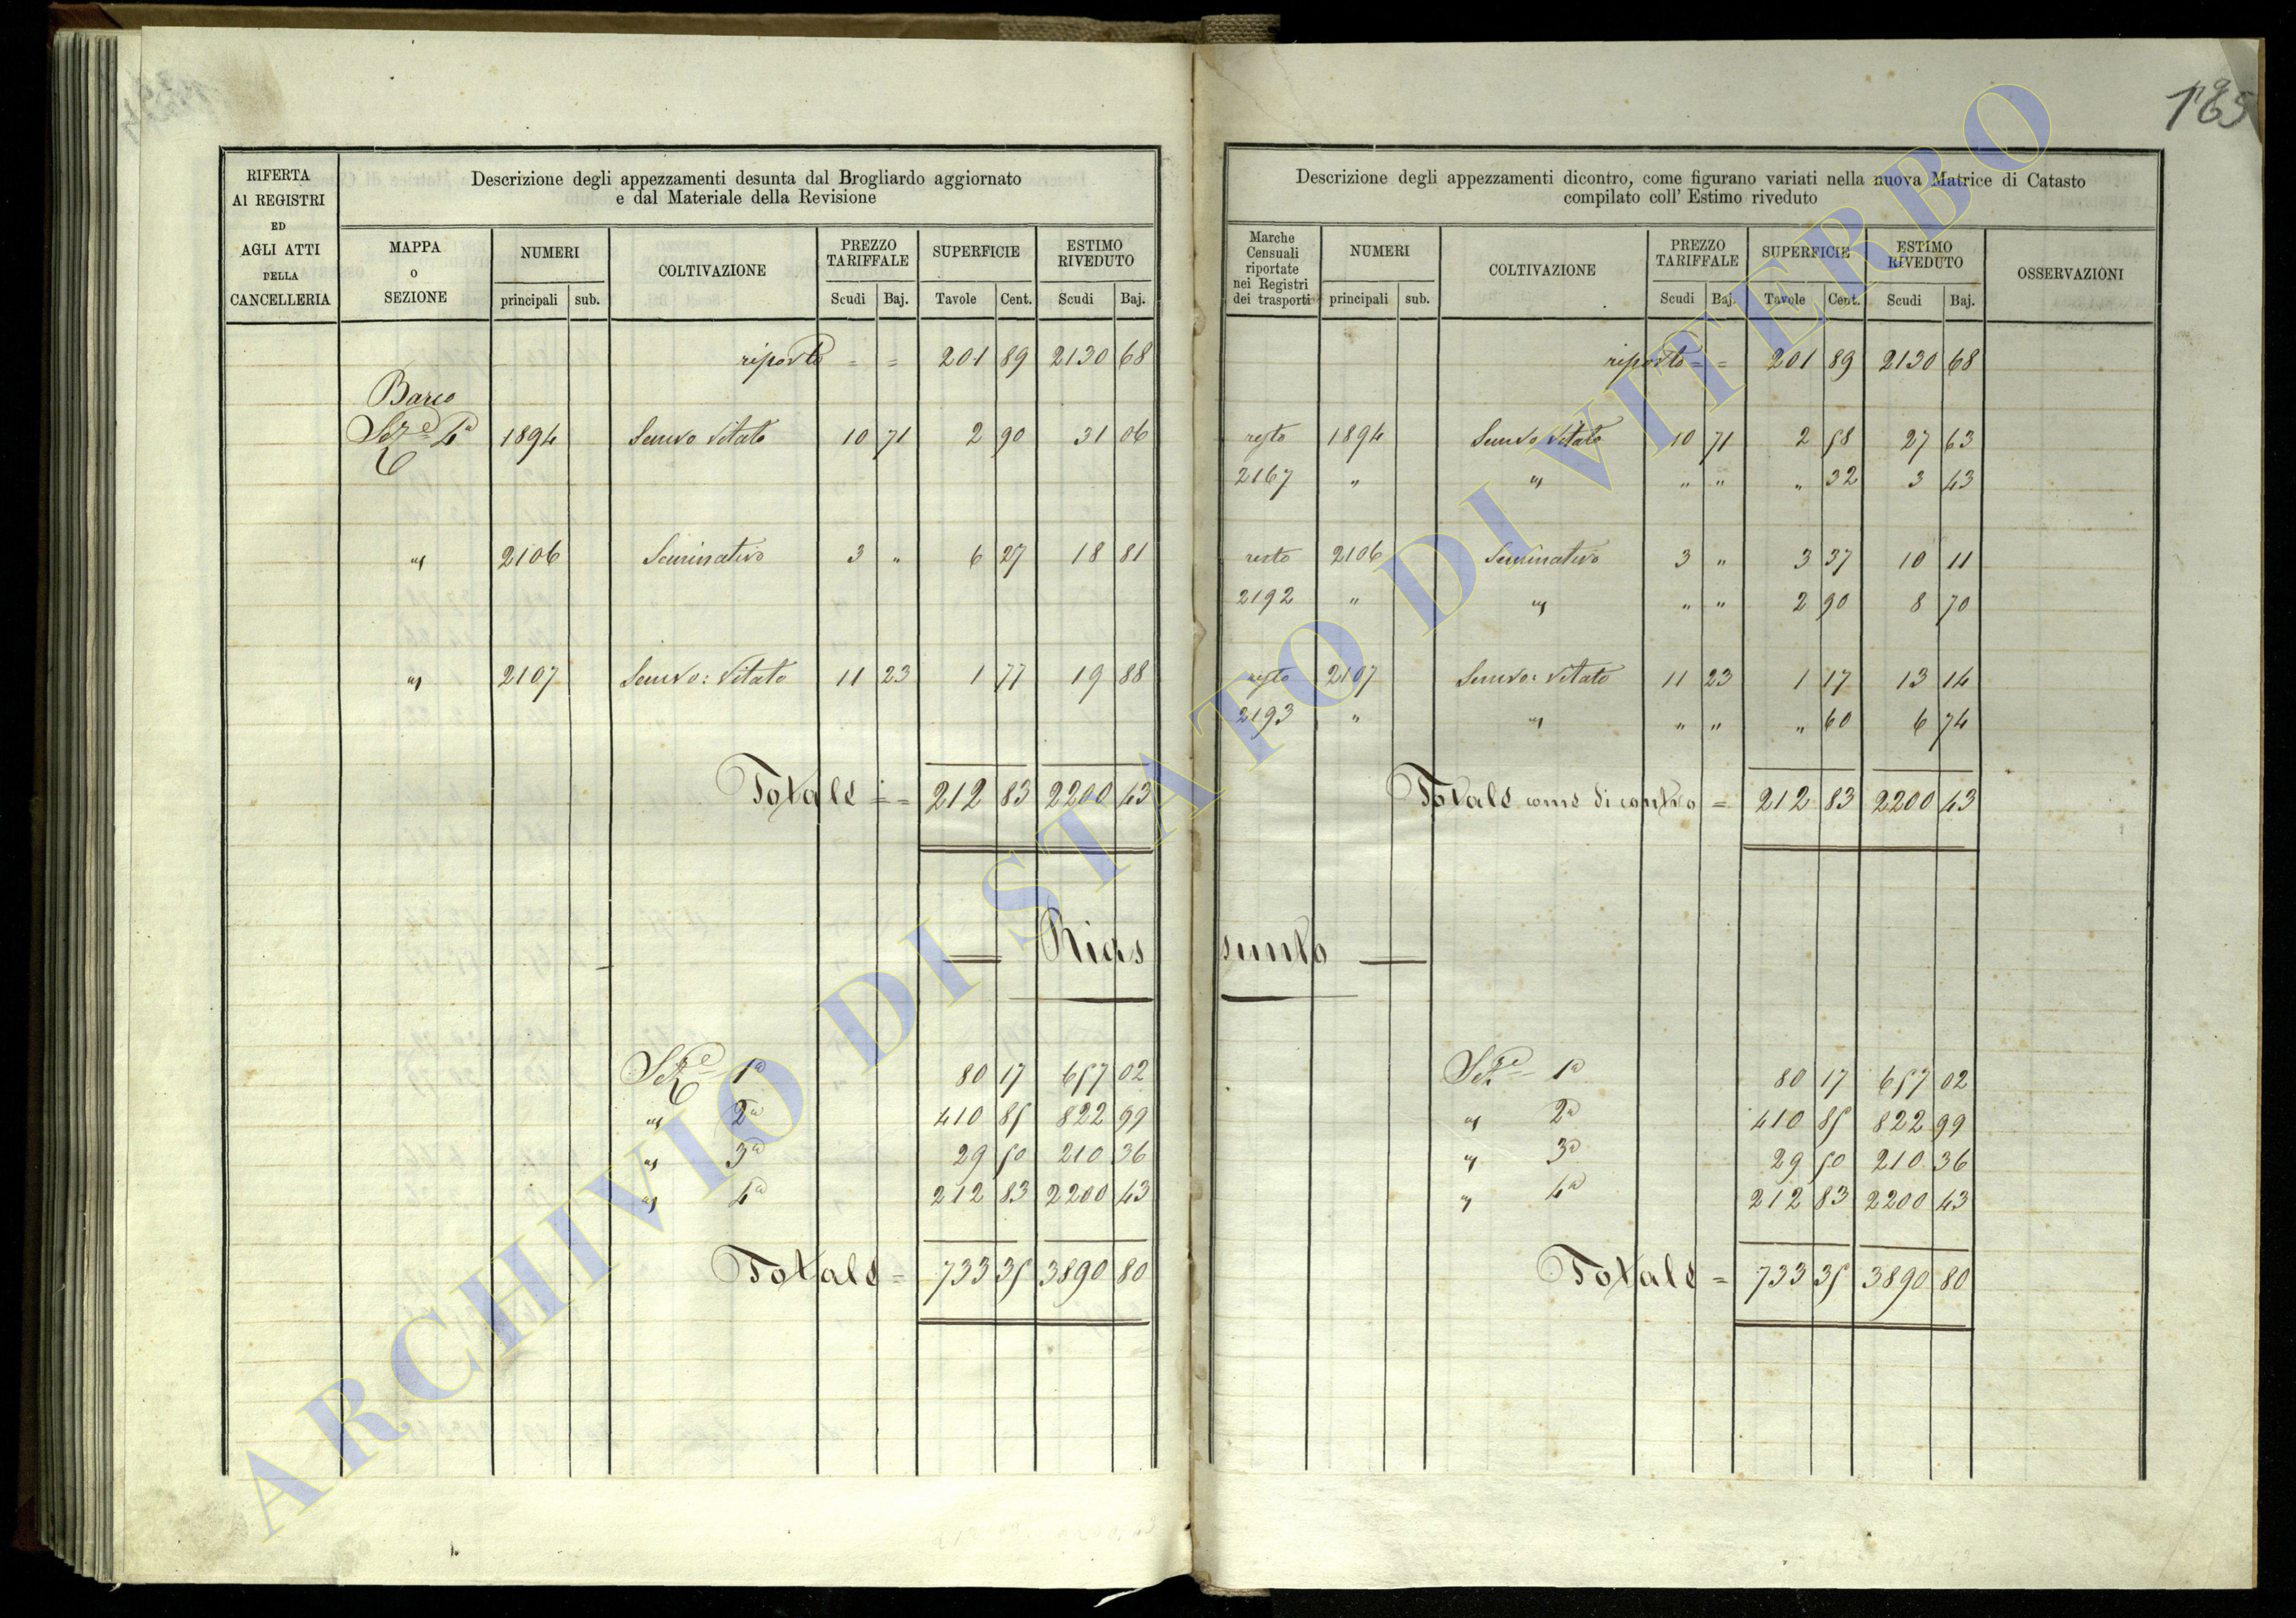 185
RIFERTA
AI REGISTRI
ED
AGLI ATTI
DELLA
CANCELLERIA
Descrizione degli appezzamenti desunta dal Brogliardo aggiornato
e dal Materiale della Revisione
MAPPA
o
SEZIONE
NUMERI
principali sub.
COLTIVAZIONE
PREZZO
TARIFFALE
Scudi Baj.
SUPERFICIE
Tavole Cent.
ESTIMO
RIVEDUTO
Scudi Baj.
riporto = = 201 89 2130 68
Barco
Sez.e 4a 1894 Semvo Vitato 10 71 2 90 31 06
" 2106 Seminativo 3 " 6 27 18 81
" 2107 Semvo: Vitato 11 23 1 77 19 88
Totale = = 212 83 2200 43
Sez.e 1a 80 17 657 02
" 2a 410 85 822 99
" 3a 29 50 210 36
" 4a 212 83 2200 43
Totale = 733 35 3890 80
Descrizione degli appezzamenti dicontro, come figurano variati nella nuova Matrice di Catasto
compilato coll' Estimo riveduto
Marche
Censuali
riportate
nei Registri
dei trasporti
NUMERI
principali sub.
COLTIVAZIONE
PREZZO
TARIFFALE
Scudi Baj.
SUPERFICIE
Tavole Cent.
ESTIMO
RIVEDUTO
Scudi Baj.
OSSERVAZIONI
riporto = = 201 89 2130 68
resto 1894 Semvo Vitato 10 71 2 58 27 63
2167 " " " " " 32 3 43
resto 2106 Seminativo 3 " 3 37 10 11
2192 " " " " 2 90 8 70
resto 2107 Semvo: Vitato 11 23 1 17 13 14
2193 " " " " " 60 6 74
Totale come dicontro = 212 83 2200 43
Riassunto
Sez.e 1a 80 17 657 02
" 2a 410 85 822 99
" 3a 29 50 210 36
" 4a 212 83 2200 43
Totale = 733 35 3890 80
ARCHIVIO DI STATO DI VITERBO